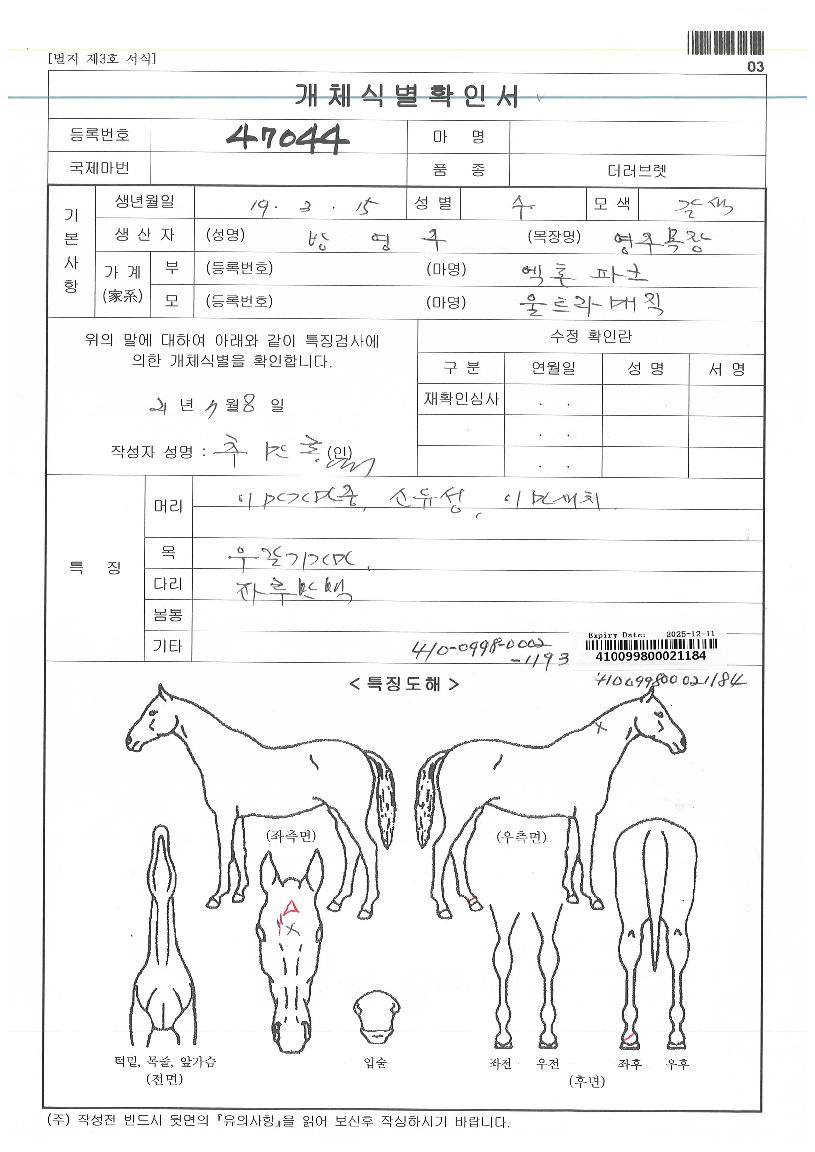 [별지 제3호 서식]
03
개체식별확인서
등록번호 47044 마 명
국제마번 품 종 더러브렛
기본사항
생년월일 19. 3. 15 성 별 수 모 색 갈색
생 산 자 (성명) 방영주 (목장명) 영주목장
가 계 (家系) 부 (등록번호) (마명) 엑톤 파크
모 (등록번호) (마명) 울트라매직
위의 말에 대하여 아래와 같이 특징검사에
의한 개체식별을 확인합니다.
수정 확인란
구 분 연월일 성 명 서 명
재확인심사 . .
. .
. .
21 년 7 월 8 일
작성자 성명 : (인)
특 징
머리
목
다리
몸통
기타 410-0998-0002
-1193
Expiry Date: 2025-12-11
410099800021184
410099800021184
< 특징도해 >
(좌측면) (우측면)
턱밑, 목줄, 앞가슴
(전면)
입술
좌전 우전 좌후 우후
(후면)
(주) 작성전 반드시 뒷면의 『유의사항』을 읽어 보신후 작성하시기 바랍니다.